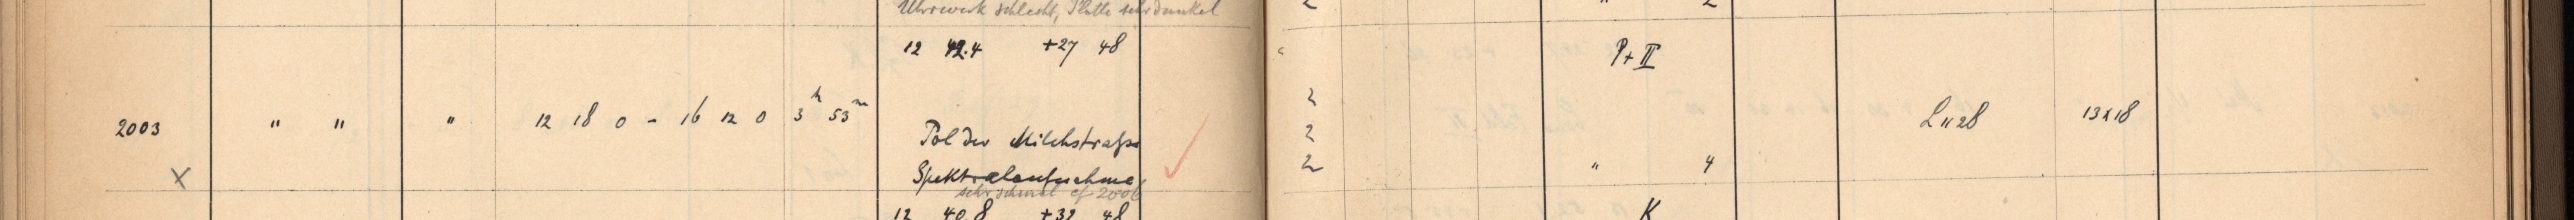 Uhrwerk schlecht, Platte sehr dunkel
2 " 2
12 42.4 +27 48 P+II
2003 " " " 12 18 0 - 16 12 0 3h 53m 2 13x18
Pol der Milchstraße 2
X Spektralaufnahme 2 " 4
sehr schmal cf 2006
12 40.8 +32 48 K